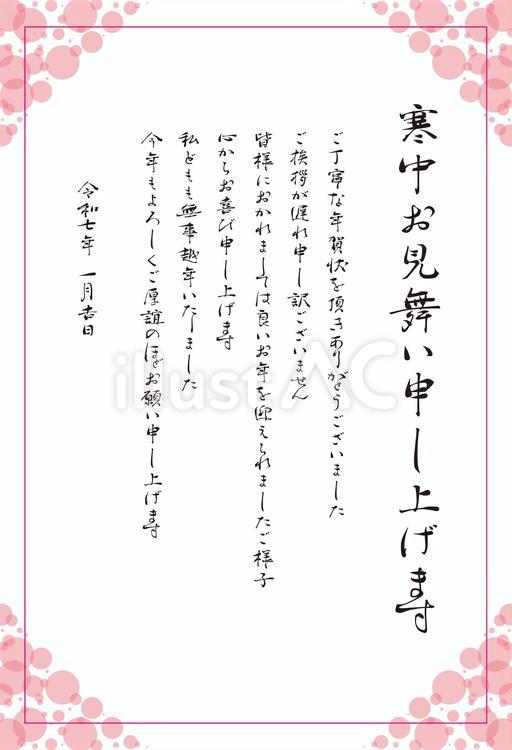 寒中お見舞い申し上げます
ご丁寧な年賀状を頂きありがとうございました
ご挨拶が遅れ申し訳ございません
皆様におかれましては良いお年を迎えられましたご様子
心からお喜び申し上げます
私どもも無事越年いたしました
今年もよろしくご厚誼のほどお願い申し上げます
令和七年 一月吉日
illustAC